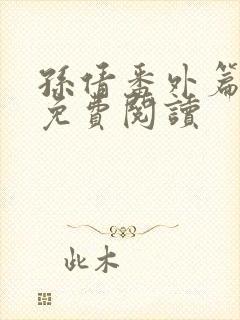 孫倩番外篇
免費閱讀
此木